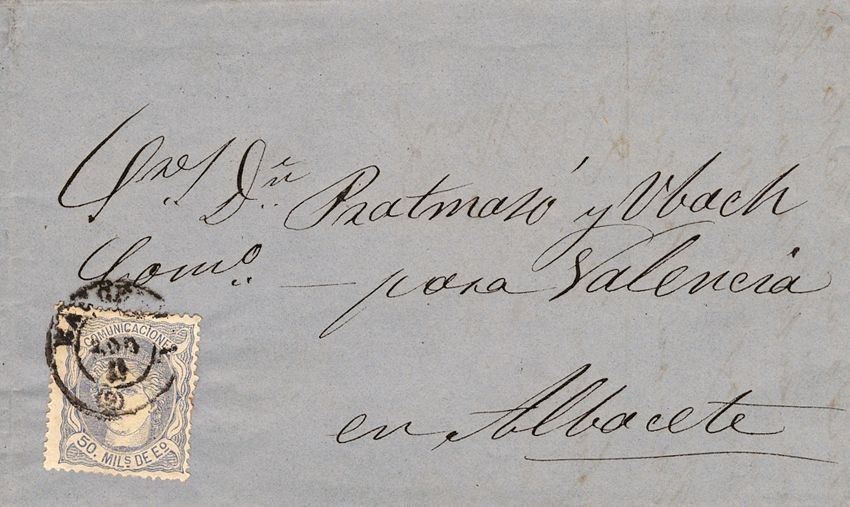 Sres Dn Pratmasó y Ubach
Como — para Valencia
en Albacete
COMUNICACIONES
50. MILS DE Eo.